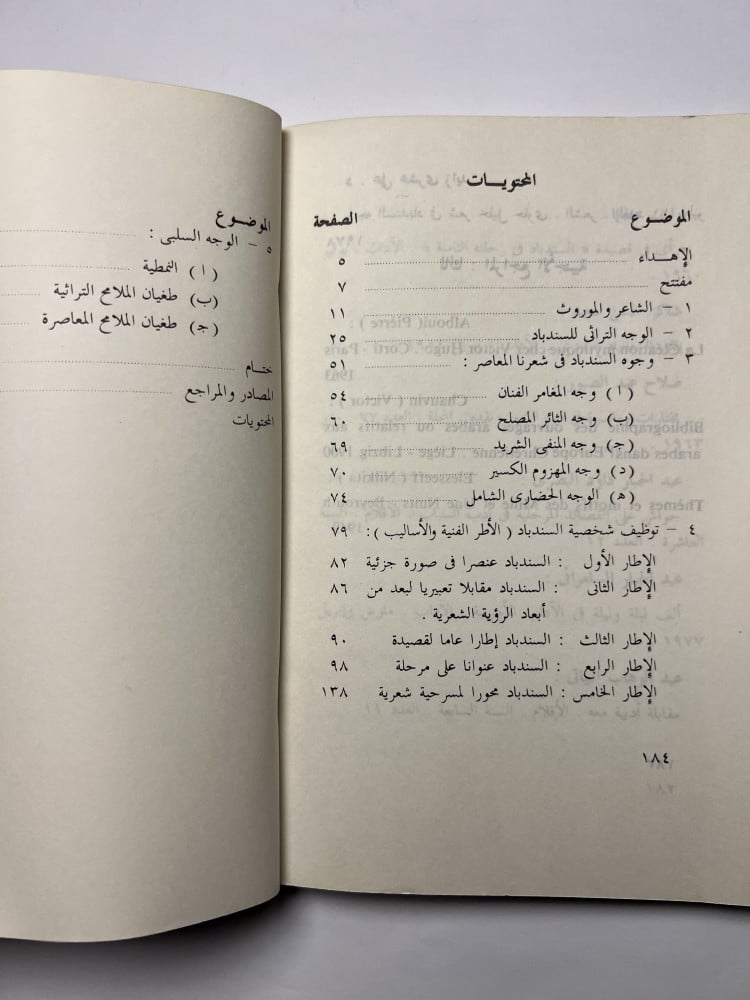 المحتويات
الموضوع الصفحة
الإهداء ٥
مفتتح ٧
١ - الشاعر والموروث ١١
٢ - الوجه التراثى للسندباد ٢٥
٣ - وجوه السندباد فى شعرنا المعاصر : ٥١
( ا ) وجه المغامر الفنان ٥٤
(ب) وجه الثائر المصلح ٦٠
(ج) وجه المنفى الشريد ٦٩
(د) وجه المهزوم الكسير ٧٠
(ه) الوجه الحضارى الشامل ٧٤
٤ - توظيف شخصية السندباد ( الأطر الفنية والأساليب ) : ٧٩
الإطار الأول : السندباد عنصرا فى صورة جزئية ٨٢
الإطار الثانى : السندباد مقابلا تعبيريا لبعد من ٨٦
أبعاد الرؤية الشعرية .
الإطار الثالث : السندباد إطارا عاما لقصيدة ٩٠
الإطار الرابع : السندباد عنوانا على مرحلة ٩٨
الإطار الخامس : السندباد محورا لمسرحية شعرية ١٣٨
١٨٤
الموضوع
٥ - الوجه السلبى :
( ا ) النمطية
(ب) طغيان الملامح التراثية
(ج) طغيان الملامح المعاصرة
ختام
المصادر والمراجع
المحتويات